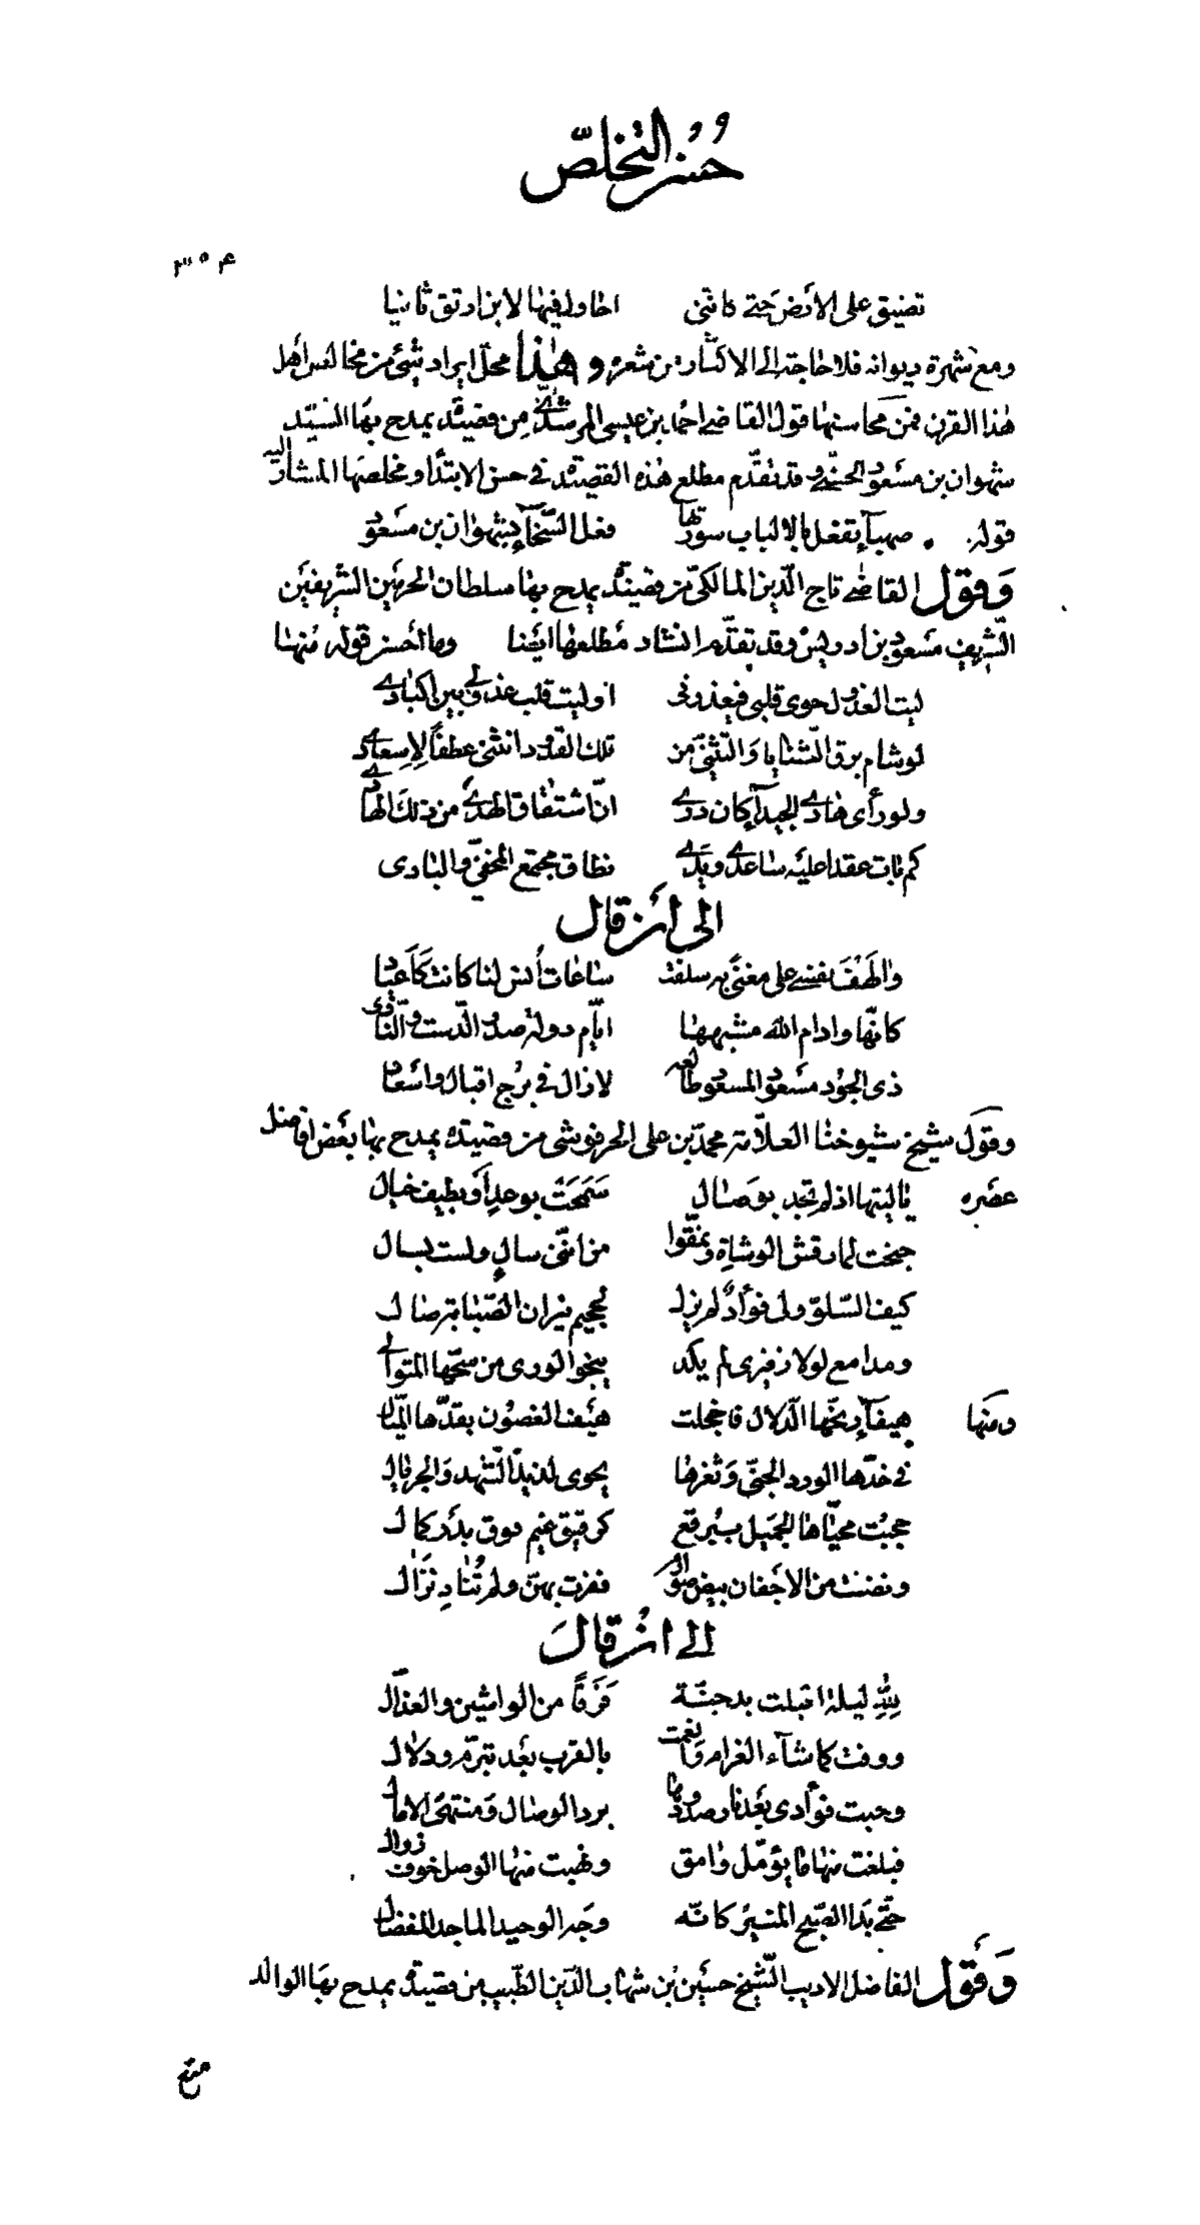 حُسن التخلّص
٣٥٤
تضيق على الأرض حتى كانّنى احاول فيها لابن ارتق ثانيا
ومع شهرة ديوانه فلا حاجة الى الاكثار من شعره وهذا محلّ ايراد شئ من مخالص اهل
هذا القرن فمن محاسنها قول القاضى احمد بن عيسى المرشدىّ من قصيدة يمدح بها السيّد
شهوان بن مسعود الحسنى وقد تقدّم مطلع هذه القصيدة فى حسن الابتدا ومخلصها المشار اليه
قوله صهبآء تفعل بالالباب سورتها فعل السّخآء بشهوان بن مسعود
وَقول القاضى تاج الدّين المالكىّ من قصيدة يمدح بها سلطان الحرمين الشريفين
الشّريف مسعود بن ادريس وقد تقدّم انشاد مطلعها ايضا وما احسن قوله منها
ليت العذول حوى قلبى فيعذرنى او ليت قلب عذولى بين اكبادى
لو شام برق الثّنايا والتّثنّى من تلك القدود انثنى عطفًا لإسعادى
ولو رأى هادى الجيدآء كان درى انّ اشتقاق الهدى من ذلك الهادى
كم بات عقدا عليه ساعدى ويدى نطاق مجتمع المخفىّ والبادى
الى أن قال
والَهْفَ نفسى على مغنىً به سلفت ساعات أنس لنا كانت كأعياد
كانّها وادام الله مشبهها ايّام دولة صدر الدّست والنّادى
ذى الجود مسعود المسعود طالعه لا زال فى برج اقبال واسعاد
وقول شيخ شيوخنا العلّامة محمد بن على الحرفوشى من قصيدة يمدح بها بعض افاضل
عصره ياليتها اذ لم تجد بوصال سَمَحَت بوعدٍ أو بطيف خيال
جنحت لما رقش الوشاة ونمّقوا من انّنى سالٍ ولست بسال
كيف السّلوّ ولى فؤادٌ لم يزل لجحيم نيران الصّبابة صال
ومدامع لولا زفيرى لم يكد ينجو الورى من سحّها المتوالى
ومنها هيفآء رنّحها الدّلال فاخجلت هيف الغصون بقدّها الميّال
فى خدّها الورد الجنىّ وثغرها يحوى لذيذ الشّهد والجريال
حجبت محيّاها الجميل ببرقع كرقيق غيم فوق بدر كمال
ونضت من الاجفان بيض صوارم ففزت بهنّ ولم تُناد نَزَال
الى ان قال
لِلّهِ ليلة اقبلت بدجنّة فَرَقًا من الواشين والعذّال
ووفت كما شآء الغرام وانعمت بالقرب بعد تبرّم ودلال
وحبت فؤادى بعد نار صدودها برد الوصال ومنتهى الامال
فبلغت منها ما يؤمّل وامق ونهبت منها الوصل خوف زوال
حتّى بدا الصّبح المنير كانّه وجه الوحيد الماجد المفضال
وَقول الفاضل الاديب الشّيخ حسين بن شهاب الدّين الطّبيب من قصيدة يمدح بها الوالد